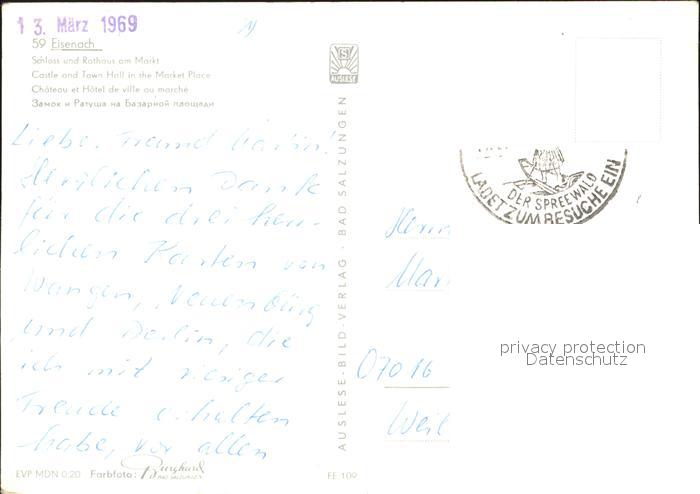 13. März 1969
59 Eisenach
Schloss und Rathaus am Markt
Castle and Town Hall in the Market Place
Château et Hôtel de ville au marché
Замок и Ратуша на Базарной площади
Liebe
Herzlichen Dank
für die drei herr-
lichen Karten von
Wangen, Neuenbürg
und Berlin, die
ich mit riesiger
Freude erhalten
habe, vor allen
EVP MDN 0.20 Farbfoto: Burghard
BAD SALZUNGEN
S
AUSLESE
AUSLESE-BILD-VERLAG · BAD SALZUNGEN
FE 109
DER SPREEWALD
LADET ZUM BESUCHE EIN
Herrn
Mar
07016
Weil
privacy protection
Datenschutz